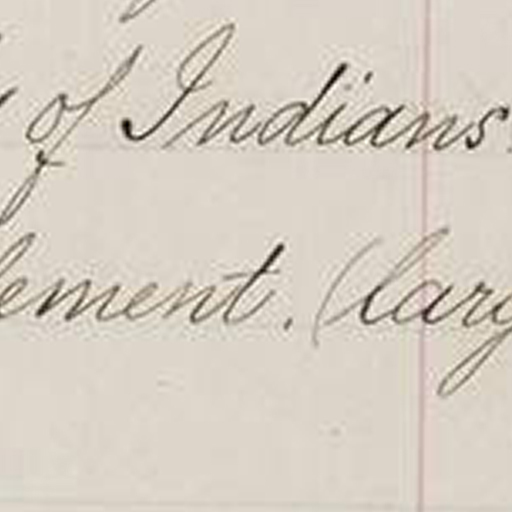 of Indians
lement. (larg